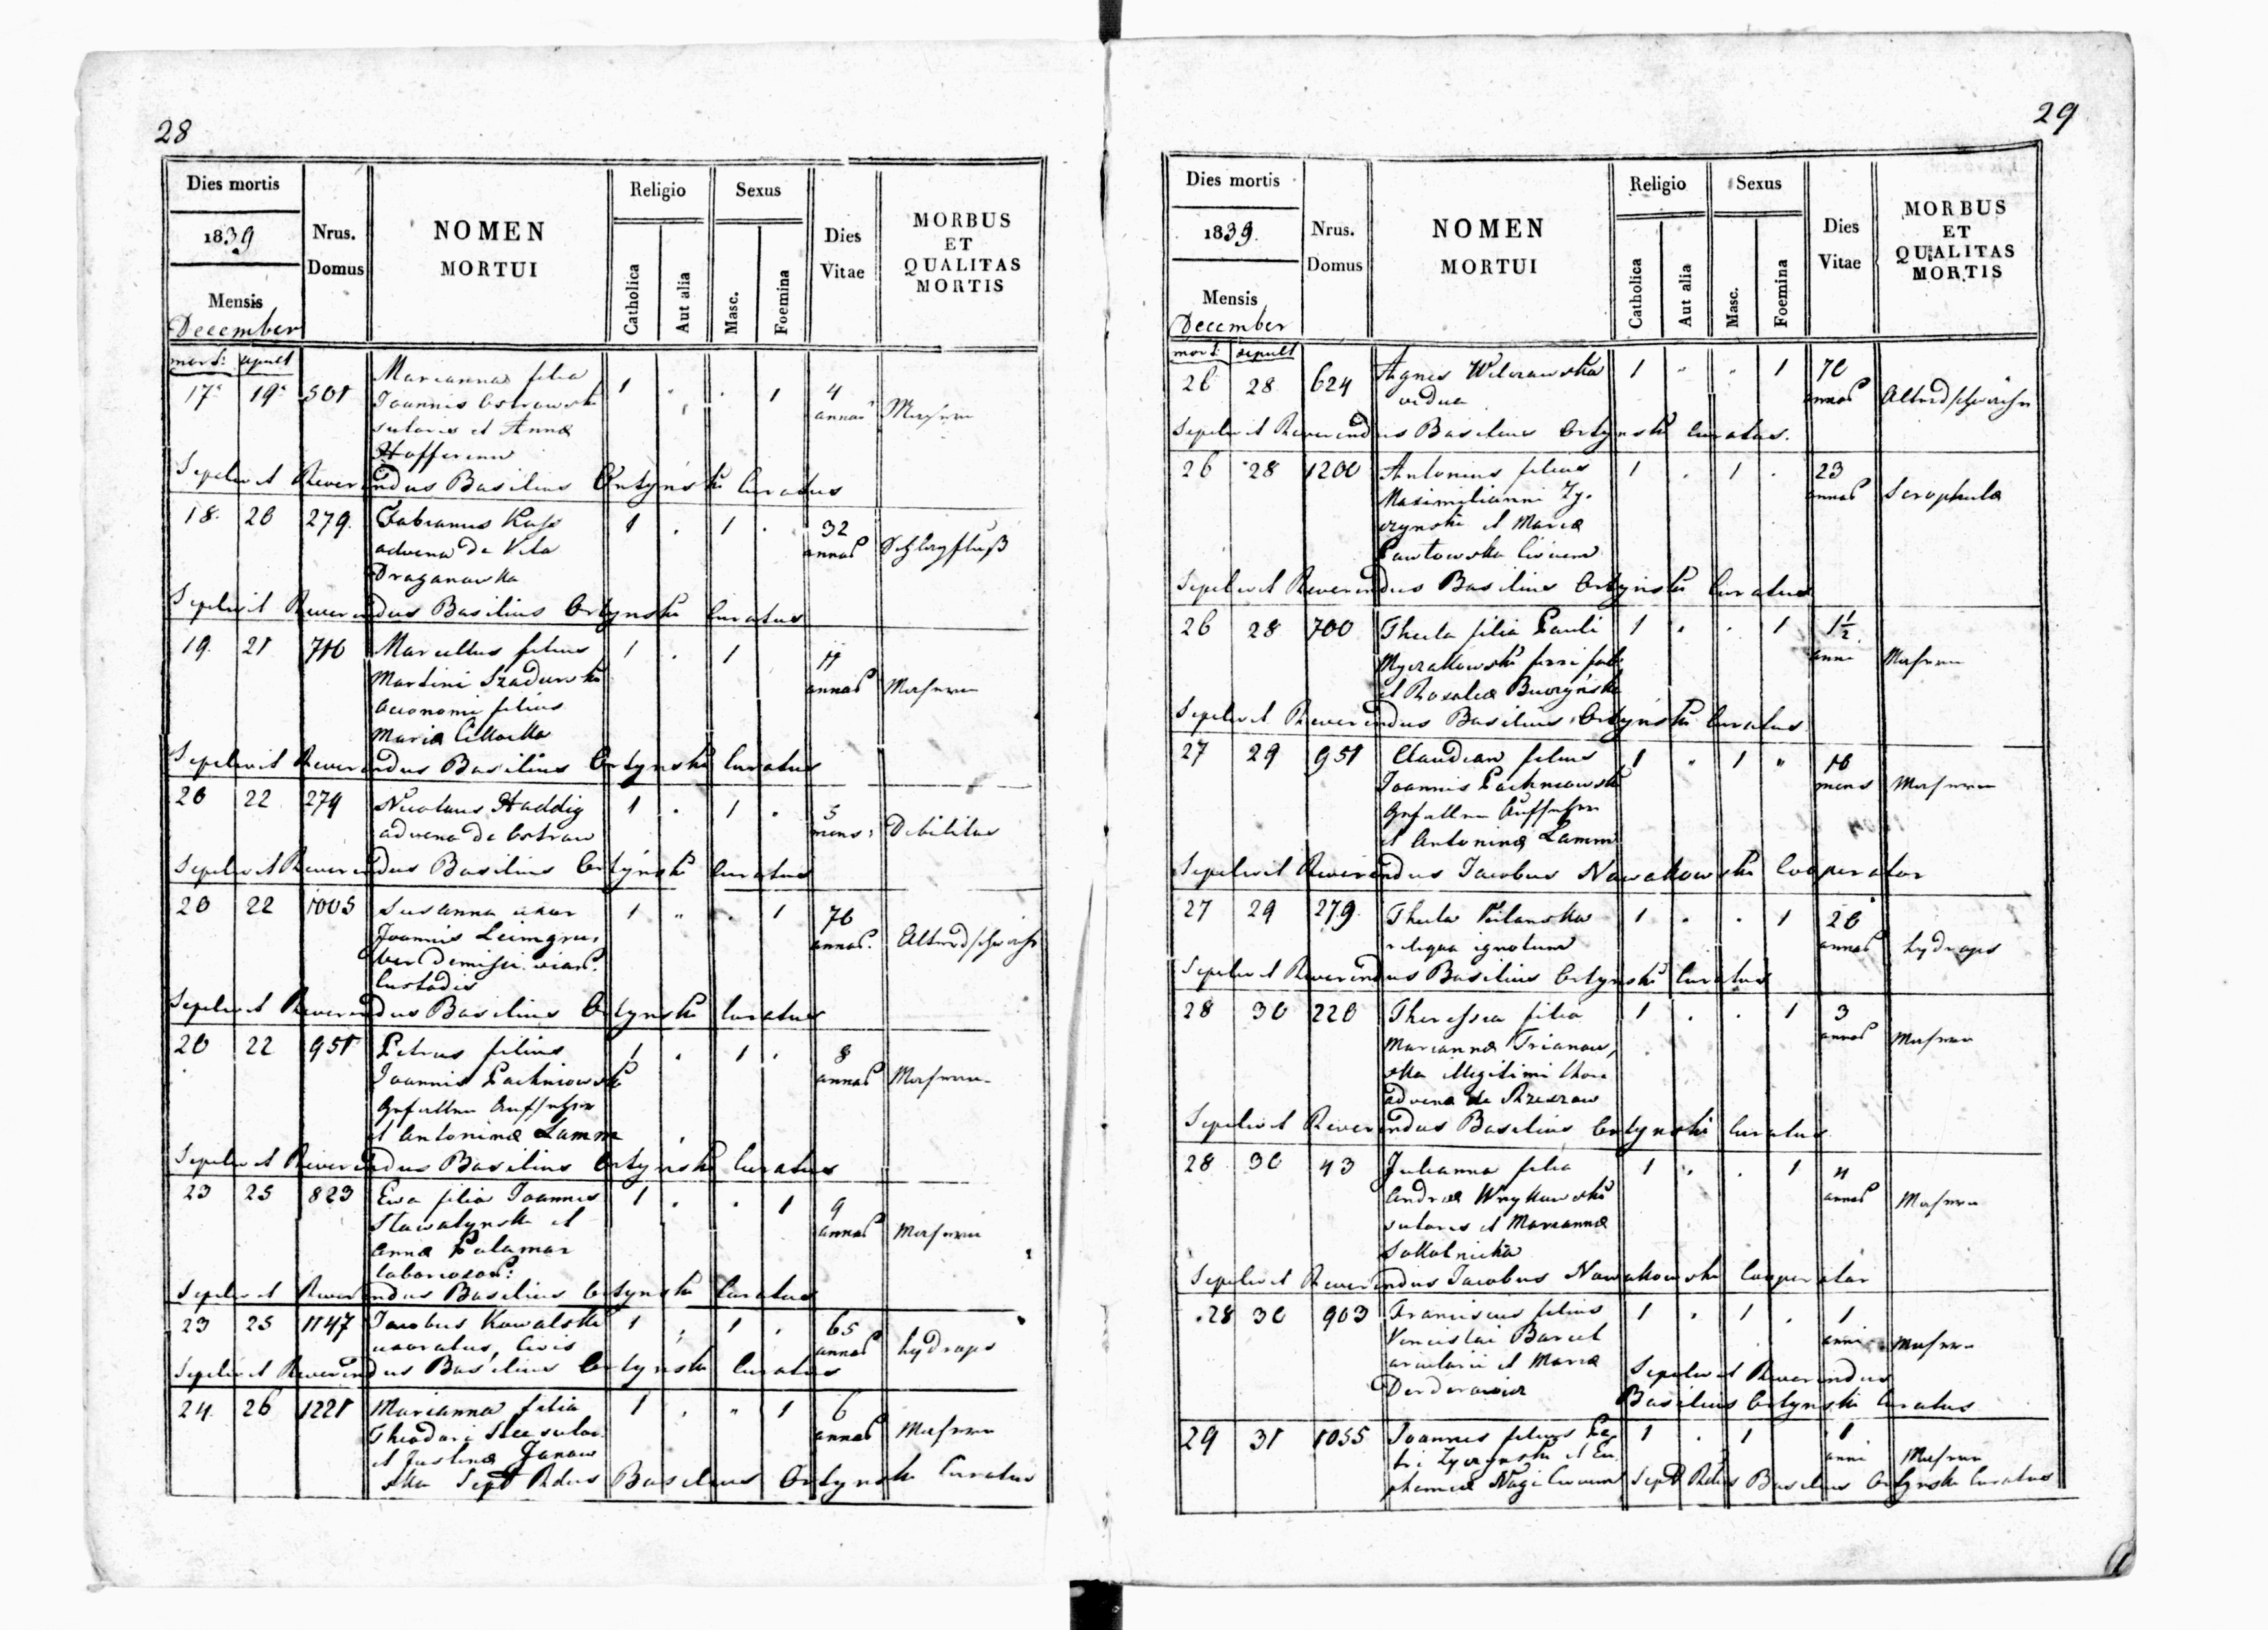 28
Dies mortis
1839
Mensis
December
Nrus.
Domus
NOMEN
MORTUI
Religio
Catholica
Aut alia
Sexus
Masc.
Foemina
Dies
Vitae
MORBUS
ET
QUALITAS
MORTIS
mort: sepult
17 19 501 Marianna filia 1 . . 1 4
Joannis Ostrowski annos Masern
sutoris et Anna
Sepelivit Reverendus Basilius Ortynski Curatus
18. 20 279. Fabianus 1 . 1 . 32
advena de annos Schlagfluß
Draganowka
Sepelivit Reverendus Basilius Ortynski Curatus
19. 21 Marcellus filius 1 . 1
Martini Szadurski annos Masern
oeconomi filius
Maria
Sepelivit Reverendus Basilius Ortynski Curatus
20 22 279 Nicolaus Haddig 1 . 1 . 5
advena de Ostrow mens: Debilitas
Sepelivit Reverendus Basilius Ortynski Curatus
20 22 1005 Susanna uxor 1 " . 1 70
Joannis Leimgru, annos. Altersschwäche
ber demissi
Custodis
Sepelivit Reverendus Basilius Ortynski Curatus
20 22 951 Petrus filius 1 . 1 . 8
Joannis Pachniowski annos Masern
Gefällen Aufseher
et Antonina Lamm
Sepelivit Reverendus Basilius Ortynski Curatus
23 25 823 Eva filia Joannis 1 . . 1 9
et annos Masern
Anna Palamar
Sepelivit Reverendus Basilius Ortynski Curatus
23 25 1147 Jacobus Kowalski 1 . 1 . 65
uxoratus, Civis annos hydrops
Sepelivit Reverendus Basilius Ortynski Curatus
24. 26 1221 Marianna filia 1 . " 1 6
Theodori annos Masern
et Justina Janow
ska Sept Rdus Basilius Ortynski Curatus
29
Dies mortis
1839.
Mensis
December
Nrus.
Domus
NOMEN
MORTUI
Religio
Catholica
Aut alia
Sexus
Masc.
Foemina
Dies
Vitae
MORBUS
ET
QUALITAS
MORTIS
mort. sepult
26 28 624 Agnes Wilczawska 1 " " 1 70
vidua annos Altersschwäche
Sepelivit Reverendus Basilius Ortynski Curatus.
26 28 1200 Antonius filius 1 . 1 . 23
Maximilianni Zy, annos Scrophula
czynski et Maria
Pawłowska Civium
Sepelivit Reverendus Basilius Ortynski Curatus
26 28 700 Thecla filia Pauli 1 . . 1 1½
Myczakowski anni Masern
et Rosalia
Sepelivit Reverendus Basilius Ortynski Curatus
27 29 951 Claudian filius 1 " 1 " 10
Joannis Pachniowski mens Masern
Gefällen Aufseher
et Antonina Lamm
Sepelivit Reverendus Jacobus Nowakowski Cooperator
27 29 279. Thecla 1 . . 1 20
reliqua ignotum annos hydrops
Sepelivit Reverendus Basilius Ortynski Curatus
28 30 220 Theressia filia 1 . . 1 3
Marianna Trianow, annos Masern
ska illegitimi thori
advena de Rzeszow
Sepelivit Reverendus Basilius Ortynski Curatus
28 30 43 Julianna filia 1 . . 1 4
Andrea Wnykowski annos Masern
sutoris et Marianna
Sokolnicka
Sepelivit Reverendus Jacobus Nowakowski Cooperator
28 30 903 Franciscus filius 1 . 1 . 1
Venceslai Barcel anni Masern
arcularii et Maria Sepelivit Reverendus
Basilius Ortynski Curatus
29 31 1055 Joannes filius Pe, 1 . 1 1
tri Zyczynski et Eu, anni Masern
phemia Nagi Civium Sept Rdus Basilius Ortynski Curatus